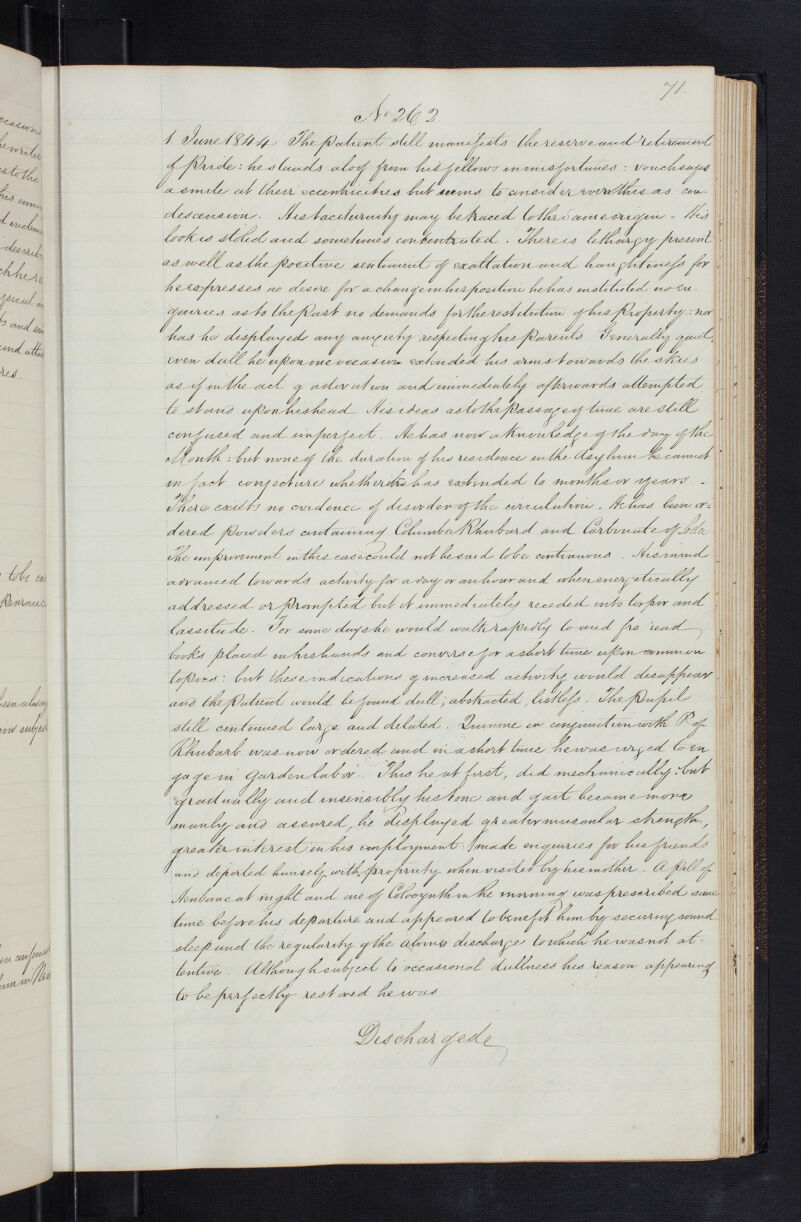 71.
No 262
1 June 1844 The patient still manifests the reserve and retirement
of pride: he stands aloof from his fellows in misfortunes: vouchsafes
a smile at their eccentricities but seems to consider even this as con-
descension. His taciturnity may be traced to the same origin - His
look is stolid and sometimes concentrated. There is lethargy present
as well as the positive sentiment of exaltation and haughtiness for
he expresses no desire for a change in his position he has instituted no en-
quiries as to the past no demands for the restitution of his property: nor
has he displayed any anxiety respecting his parents Generally quiet,
even dull he upon one occasion extended his arms towards the skies
as if in the act of adoration and immediately afterwards attempted
to stand upon his head His ideas as to the passage of time are still
confused and imperfect. He has now a knowledge of the day of the
Month: but none of the duration of his residence in the Asylum he cannot
in fact conjecture whether it has extended to months or years. -
There exists no evidence of disorder of the circulation. He has been or-
dered powders containing Columba Rhubard and Carbonate of Soda
The improvement in this case could not be said to be continuous. His mind
advanced towards activity for a day or an hour and when energetically
addressed or prompted but it immediately receded into torpor and
lassitude. For some days he would walk rapidly to and fro read
books placed in his hands and converse for a short time upon common
topics: but these indications of increased activity would disappear
and the patient would be found dull, abstracted, listless. The pupil
still continued large and dilated. Quinine in conjunction with P of
Rhubarb was now ordered and in a short time he was urged to en
gage in garden labor. This he at first, did mechanically: but
gradually and insensibly his tone and gait became more
manly and assured, he displayed greater muscular strength,
greater interest in his employment: made enquiries for his friends
and deported himself with propriety when visited by his mother. A pill of
Henbane at night and one of Colocynth in the morning was prescribed some
time before his departure and appeared to benefit him by securing sound
sleep and the regularity of the alvine discharge to which he was not at-
tentive. Although subject to occasional dullness his reason appearing
to be perfectly restored he was
Discharged